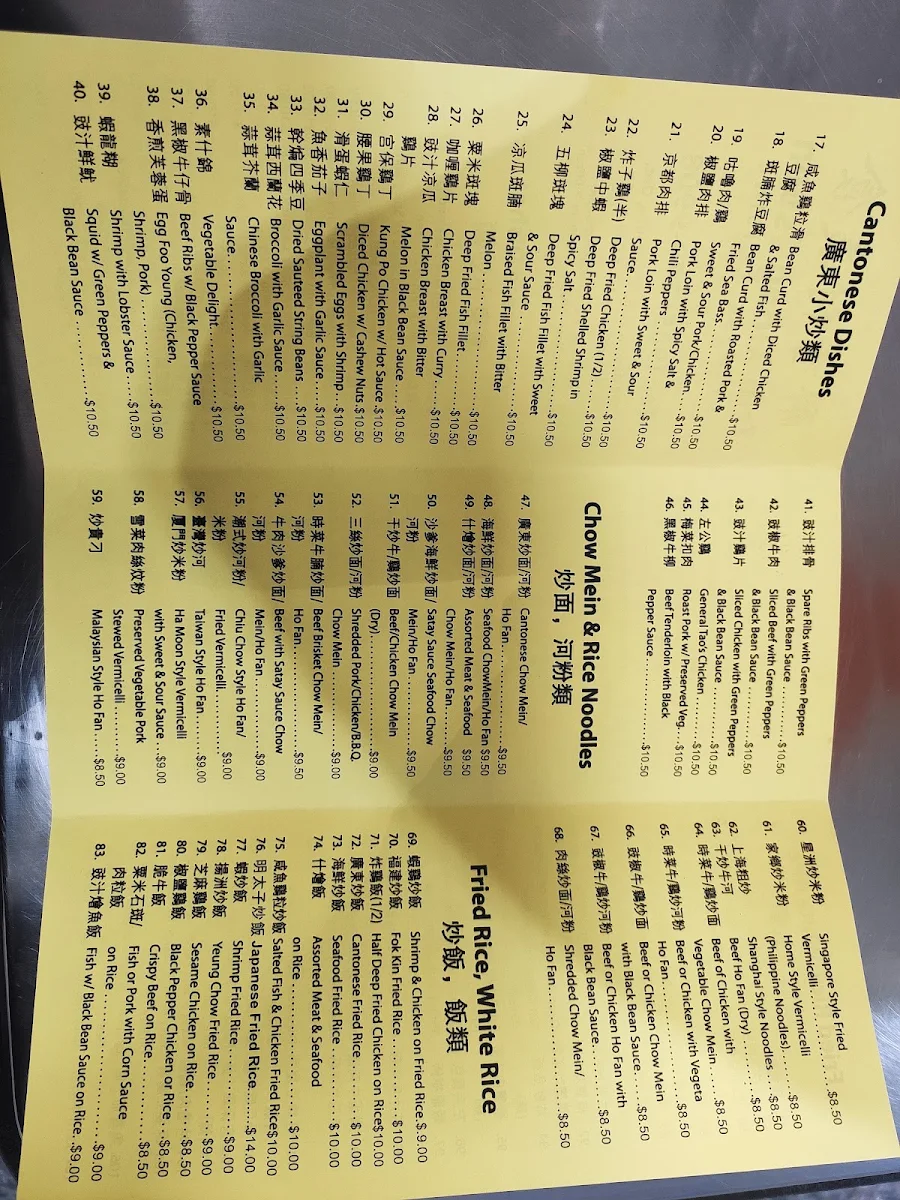 Cantonese Dishes
廣東小炒類
17. 咸魚鷄粒滑 Bean Curd with Diced Chicken
豆腐 & Salted Fish............$10.50
18. 斑腩炸豆腐 Bean Curd with Roasted Pork &
Fried Sea Bass............$10.50
19. 咕嚕肉/鷄 Sweet & Sour Pork/Chicken....$10.50
20. 椒鹽肉排 Pork Loin with Spicy Salt &
Chili Peppers............$10.50
21. 京都肉排 Pork Loin with Sweet & Sour
Sauce............$10.50
22. 炸子鷄(半) Deep Fried Chicken (1/2)....$10.50
23. 椒鹽中蝦 Deep Fried Shelled Shrimp in
Spicy Salt............$10.50
24. 五柳斑塊 Deep Fried Fish Fillet with Sweet
& Sour Sauce............$10.50
25. 凉瓜斑腩 Braised Fish Fillet with Bitter
Melon............$10.50
26. 粟米斑塊 Deep Fried Fish Fillet............$10.50
27. 咖喱鷄片 Chicken Breast with Curry....$10.50
28. 豉汁凉瓜 Chicken Breast with Bitter
鷄片 Melon in Black Bean Sauce....$10.50
29. 宫保鷄丁 Kung Po Chicken w/ Hot Sauce.$10.50
30. 腰果鷄丁 Diced Chicken w/ Cashew Nuts.$10.50
31. 滑蛋蝦仁 Scrambled Eggs with Shrimp....$10.50
32. 魚香茄子 Eggplant with Garlic Sauce....$10.50
33. 幹煸四季豆 Dried Sauteed String Beans....$10.50
34. 蒜茸西蘭花 Broccoli with Garlic Sauce....$10.50
35. 蒜茸芥蘭 Chinese Broccoli with Garlic
Sauce............$10.50
36. 素什錦 Vegetable Delight............$10.50
37. 黑椒牛仔骨 Beef Ribs w/ Black Pepper Sauce
38. 香煎芙蓉蛋 Egg Foo Young (Chicken,
Shrimp, Pork)............$10.50
39. 蝦龍糊 Shrimp with Lobster Sauce....$10.50
40. 豉汁鮮魷 Squid w/ Green Peppers &
Black Bean Sauce............$10.50
41. 豉汁排骨 Spare Ribs with Green Peppers
& Black Bean Sauce............$10.50
42. 豉椒牛肉 Sliced Beef with Green Peppers
& Black Bean Sauce............$10.50
43. 豉汁鷄片 Sliced Chicken with Green Peppers
& Black Bean Sauce............$10.50
44. 左公鷄 General Tao's Chicken............$10.50
45. 梅菜扣肉 Roast Pork w/ Preserved Veg....$10.50
46. 黑椒牛柳 Beef Tenderloin with Black
Pepper Sauce............$10.50
Chow Mein & Rice Noodles
炒面，河粉類
47. 廣東炒面/河粉 Cantonese Chow Mein/
Ho Fan............$9.50
48. 海鮮炒面/河粉 Seafood ChowMein/Ho Fan $9.50
49. 什燴炒面/河粉 Assorted Meat & Seafood
Chow Mein/Ho Fan....$9.50
50. 沙爹海鮮炒面/ Satay Sauce Seafood Chow
河粉 Mein/Ho Fan............$9.50
51. 干炒牛/鷄炒面 Beef/Chicken Chow Mein
(Dry)............$9.00
52. 三絲炒面/河粉 Shredded Pork/Chicken/B.B.Q.
Chow Mein............$9.00
53. 時菜牛腩炒面/ Beef Brisket Chow Mein/
河粉 Ho Fan............$9.50
54. 牛肉沙爹炒面/ Beef with Satay Sauce Chow
河粉 Mein/Ho Fan............$9.00
55. 潮式炒河粉/ Chiu Chow Style Ho Fan/
米粉 Fried Vermicelli............$9.00
56. 臺灣炒河 Taiwan Style Ho Fan....$9.00
57. 厦門炒米粉 Ha Moon Style Vermicelli
with Sweet & Sour Sauce...$9.00
58. 雪菜肉絲炆粉 Preserved Vegetable Pork
Stewed Vermicelli............$9.00
59. 炒貴刁 Malaysian Style Ho Fan....$8.50
60. 星洲炒米粉 Singapore Style Fried
Vermicelli............$8.50
61. 家鄉炒米粉 Home Style Vermicelli
(Philippine Noodles)....$8.50
62. 上海粗炒 Shanghai Style Noodles....$8.50
63. 干炒牛河 Beef Ho Fan (Dry)............$8.50
64. 時菜牛/鷄炒面 Beef of Chicken with
Vegetable Chow Mein....$8.50
65. 時菜牛/鷄炒河粉 Beef or Chicken with Vegeta
Ho Fan............$8.50
66. 豉椒牛/鷄炒面 Beef or Chicken Chow Mein
with Black Bean Sauce....$8.50
67. 豉椒牛/鷄炒河粉 Beef or Chicken Ho Fan with
Black Bean Sauce............$8.50
68. 肉絲炒面/河粉 Shredded Chow Mein/
Ho Fan............$8.50
Fried Rice, White Rice
炒飯，飯類
69. 蝦鷄炒飯 Shrimp & Chicken on Fried Rice.$.9.00
70. 福建炒飯 Fok Kin Fried Rice............$10.00
71. 炸鷄飯(1/2) Half Deep Fried Chicken on Rice$10.00
72. 廣東炒飯 Cantonese Fried Rice............$10.00
73. 海鮮炒飯 Seafood Fried Rice............$10.00
74. 什燴飯 Assorted Meat & Seafood
on Rice............$10.00
75. 咸魚鷄粒炒飯 Salted Fish & Chicken Fried Rice$10.00
76. 明太子炒飯 Japanese Fried Rice.......$14.00
77. 蝦炒飯 Shrimp Fried Rice............$9.00
78. 揚洲炒飯 Yeung Chow Fried Rice....$9.00
79. 芝麻鷄飯 Sesame Chicken on Rice....$9.00
80. 椒鹽鷄飯 Black Pepper Chicken or Rice....$8.50
81. 脆牛飯 Crispy Beef on Rice............$8.50
82. 粟米石斑/ Fish or Pork with Corn Sauce
肉粒飯 on Rice............$9.00
83. 豉汁燴魚飯 Fish w/ Black Bean Sauce on Rice..$9.00